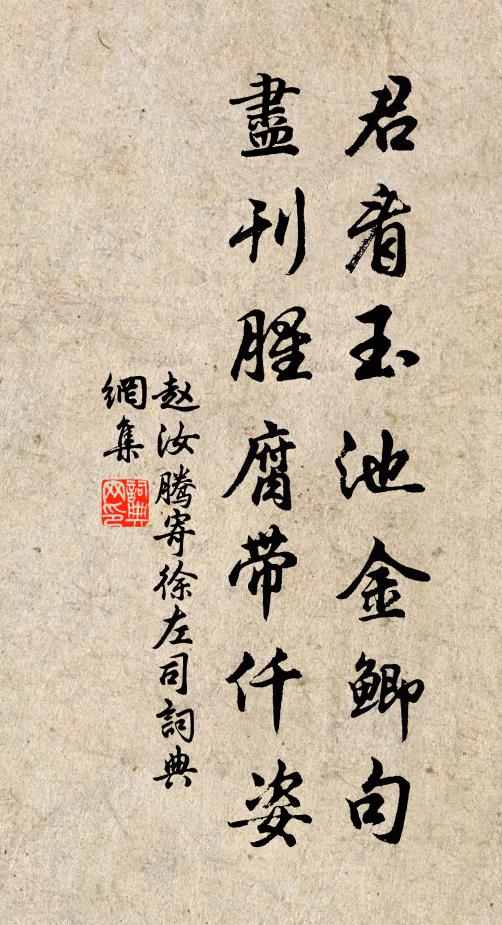 君看玉池金鯽句
盡刊腥腐帶仟姿
赵汝腾寄徐左司詞典
網集
詞典网印